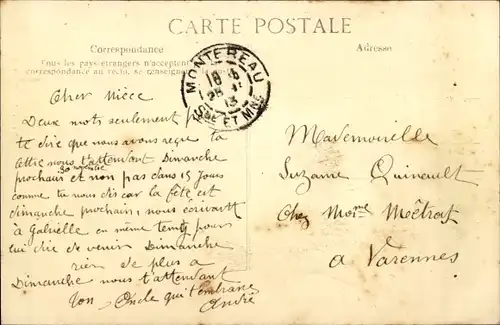 CARTE POSTALE
Correspondance
Tous les pays étrangers n'acceptent
correspondance au recto, se renseigner
Adresse
MONTEREAU
SNE ET MNE
Cher Nièce
Deux mots seulement
te dire que nous avons reçu ta
lettre nous t'attendont Dimanche
prochain 30 novembre et non pas dans 15 Jours
comme tu nous dis car la fête est
dimanche prochain, nous écrivant
à Gabrielle en même temps pour
lui dire de venir Dimanche
rien de plus a
Dimanche nous t'attendont
Ton Oncle qui t'embrasse
André
Mademoiselle
Suzanne Quinault
Chez Mme Métrat
a Varennes